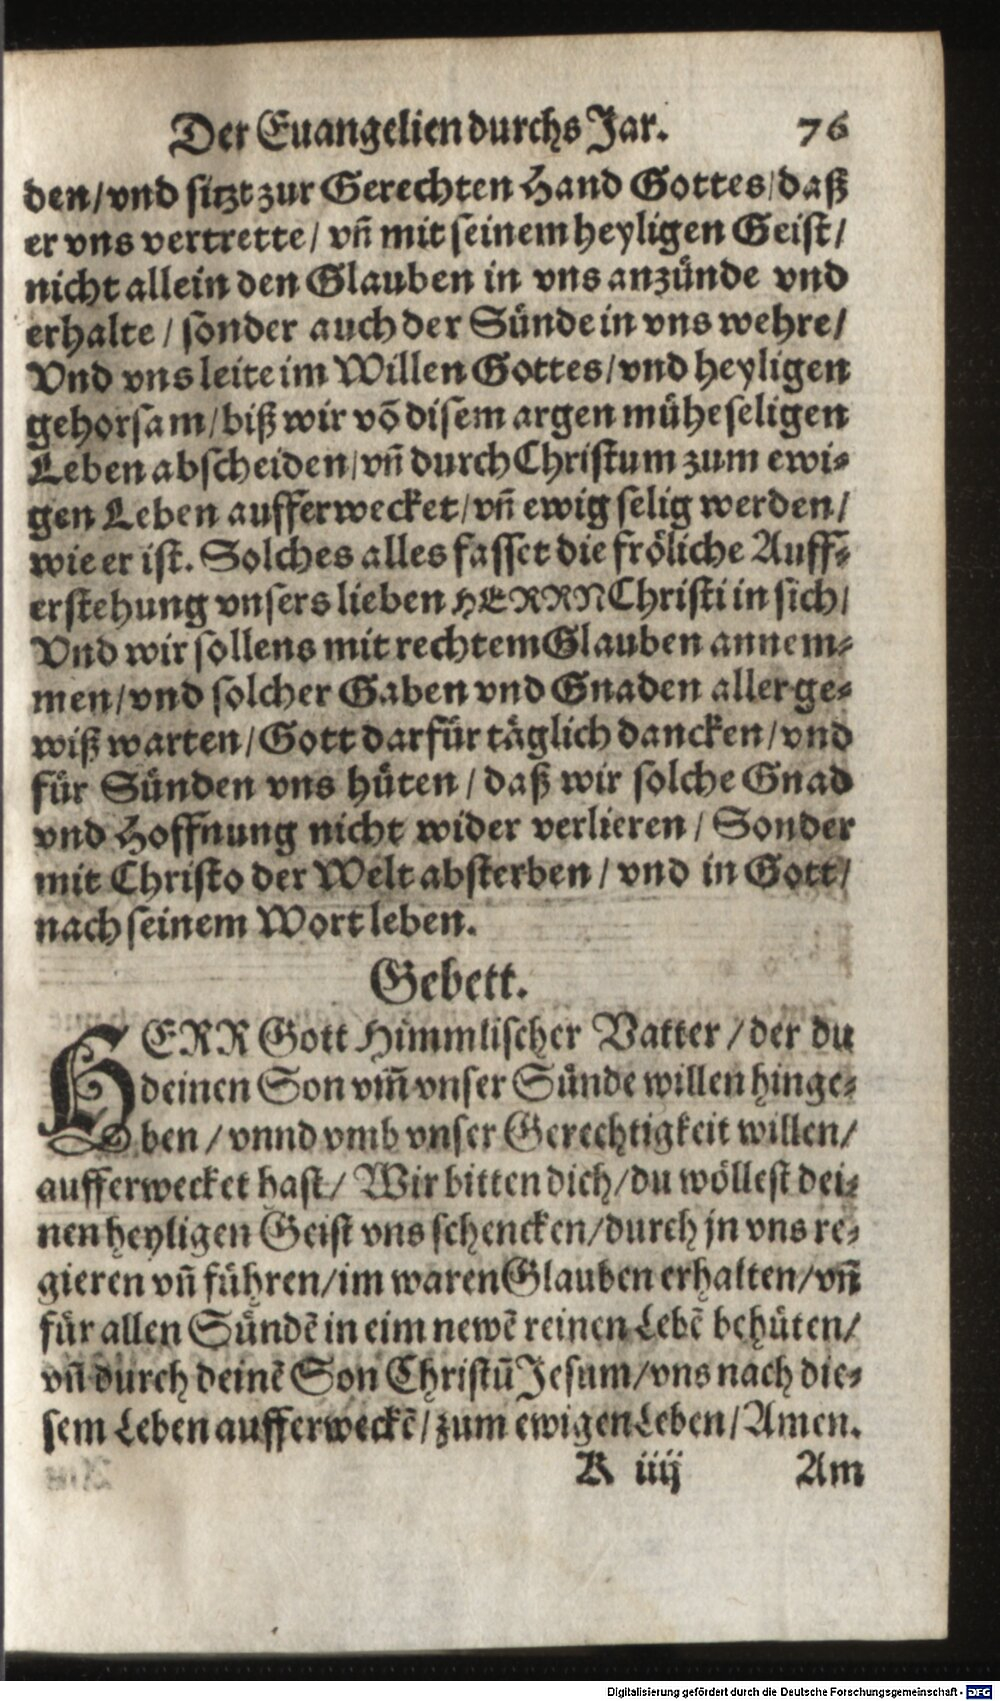 Der Euangelien durchs Jar. 76
den/ vnd sitzt zur Gerechten Hand Gottes/ daß
er vns vertrette/ vñ mit seinem heyligen Geist/
nicht allein den Glauben in vns anzünde vnd
erhalte/ sonder auch der Sünde in vns wehre/
Vnd vns leite im Willen Gottes/ vnd heyligen
gehorsam/ biß wir võ disem argen müheseligen
Leben abscheiden/ vñ durch Christum zum ewi-
gen Leben aufferwecket/ vñ ewig selig werden/
wie er ist. Solches alles fasset die fröliche Auff-
erstehung vnsers lieben HERRN Christi in sich/
Vnd wir sollens mit rechtem Glauben annem-
men/ vnd solcher Gaben vnd Gnaden aller ge-
wiß warten/ Gott darfür täglich dancken/ vnd
für Sünden vns hüten/ daß wir solche Gnad
vnd Hoffnung nicht wider verlieren/ Sonder
mit Christo der Welt absterben/ vnd in Gott/
nach seinem Wort leben.
Gebett.
HERR Gott Himmlischer Vatter/ der du
deinen Son vm̃ vnser Sünde willen hinge-
ben/ vnnd vmb vnser Gerechtigkeit willen/
aufferwecket hast/ Wir bitten dich/ du wöllest dei-
nen heyligen Geist vns schencken/ durch jn vns re-
gieren vñ führen/ im waren Glauben erhalten/ vñ
für allen Sündẽ in eim newẽ reinen Lebẽ behüten/
vñ durch deinẽ Son Christũ Jesum/ vns nach die-
sem Leben aufferweckẽ/ zum ewigen Leben/ Amen.
K iiij Am
Digitalisierung gefördert durch die Deutsche Forschungsgemeinschaft - DFG